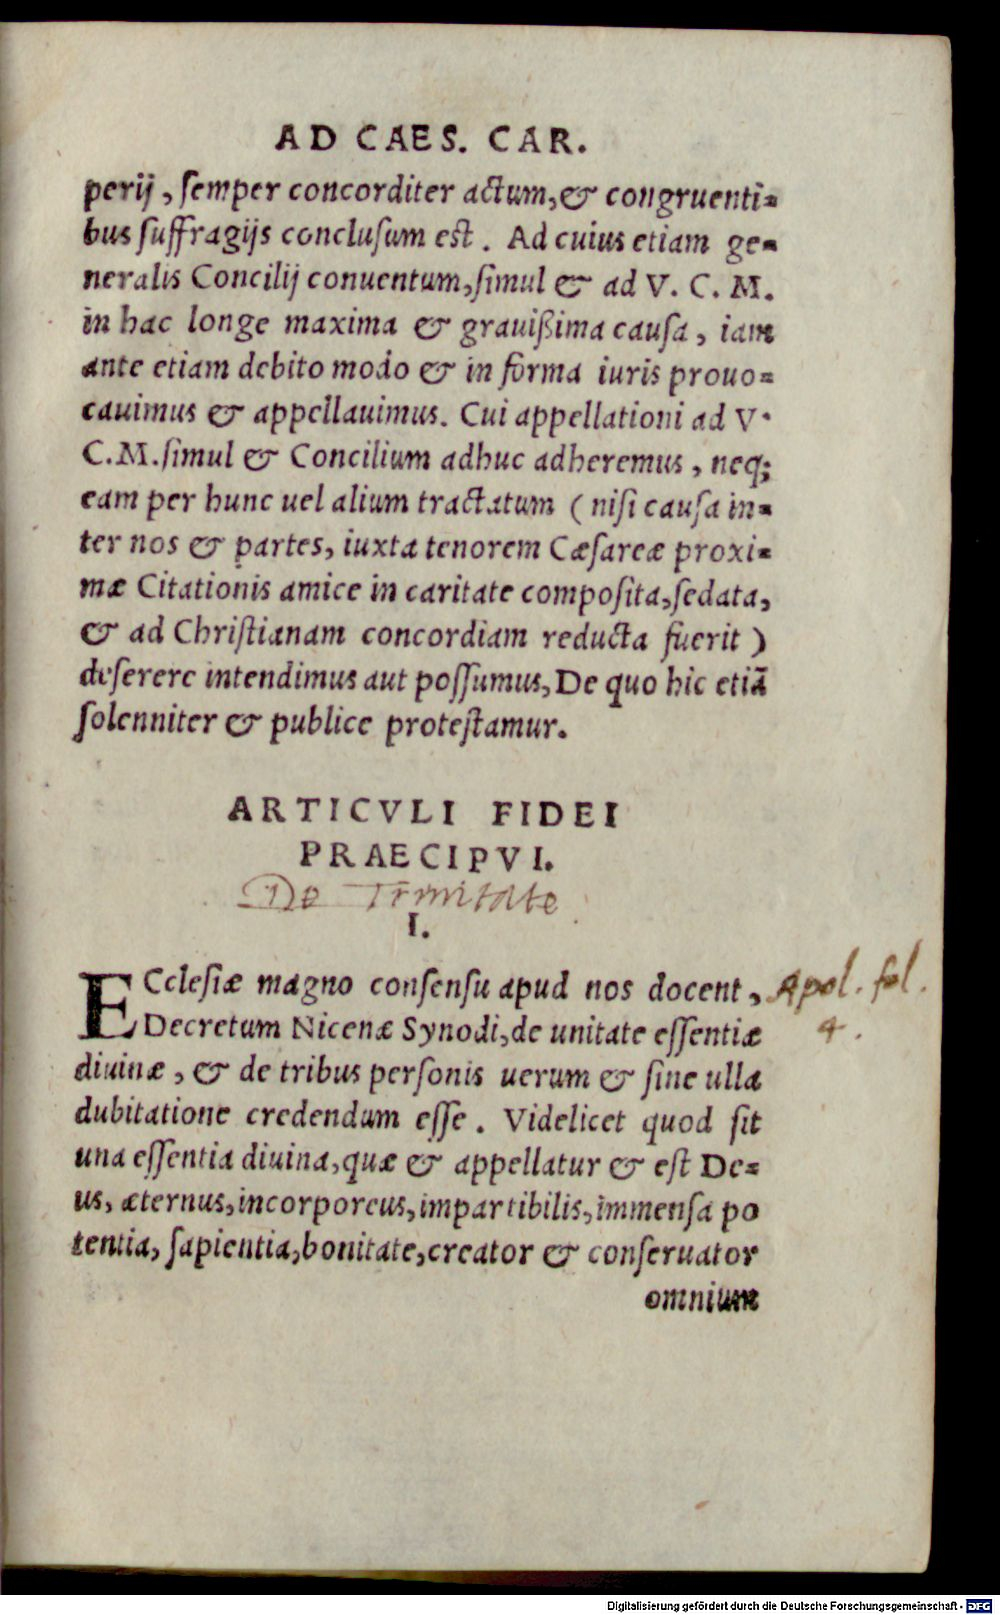 AD CAES. CAR.
perij, semper concorditer actum, & congruenti=
bus suffragijs conclusum est. Ad cuius etiam ge=
neralis Concilij conuentum, simul & ad V. C. M.
in hac longe maxima & grauißima causa, iam
ante etiam debito modo & in forma iuris prouo=
cauimus & appellauimus. Cui appellationi ad V.
C. M. simul & Concilium adhuc adheremus, neq;
eam per hunc uel alium tractatum (nisi causa in=
ter nos & partes, iuxta tenorem Cæsareæ proxi=
mæ Citationis amice in caritate composita, sedata,
& ad Christianam concordiam reducta fuerit)
deserere intendimus aut possumus, De quo hic etiā
solenniter & publice protestamur.
ARTICVLI FIDEI
PRAECIPVI.
De Trinitate
I.
ECclesiæ magno consensu apud nos docent,
Apol. fol.
4.
Decretum Nicenæ Synodi, de unitate essentiæ
diuinæ, & de tribus personis uerum & sine ulla
dubitatione credendum esse. Videlicet quod sit
una essentia diuina, quæ & appellatur & est De=
us, æternus, incorporeus, impartibilis, immensa po
tentia, sapientia, bonitate, creator & conseruator
omnium
Digitalisierung gefördert durch die Deutsche Forschungsgemeinschaft - DFG